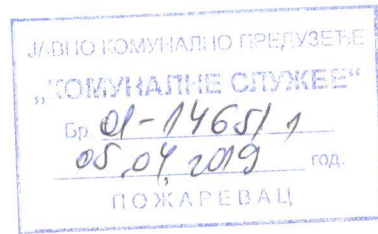 ЈАВНО КОМУНАЛНО ПРЕДУЗЕЋЕ
„КОМУНАЛНЕ СЛУЖБЕ“
Бр. 01-1465/1
05.04.2019 год.
ПОЖАРЕВАЦ